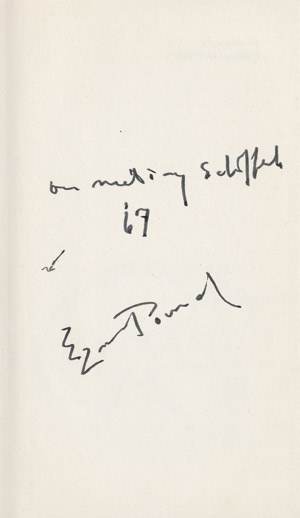 on meeting
'67
Ezra Pound